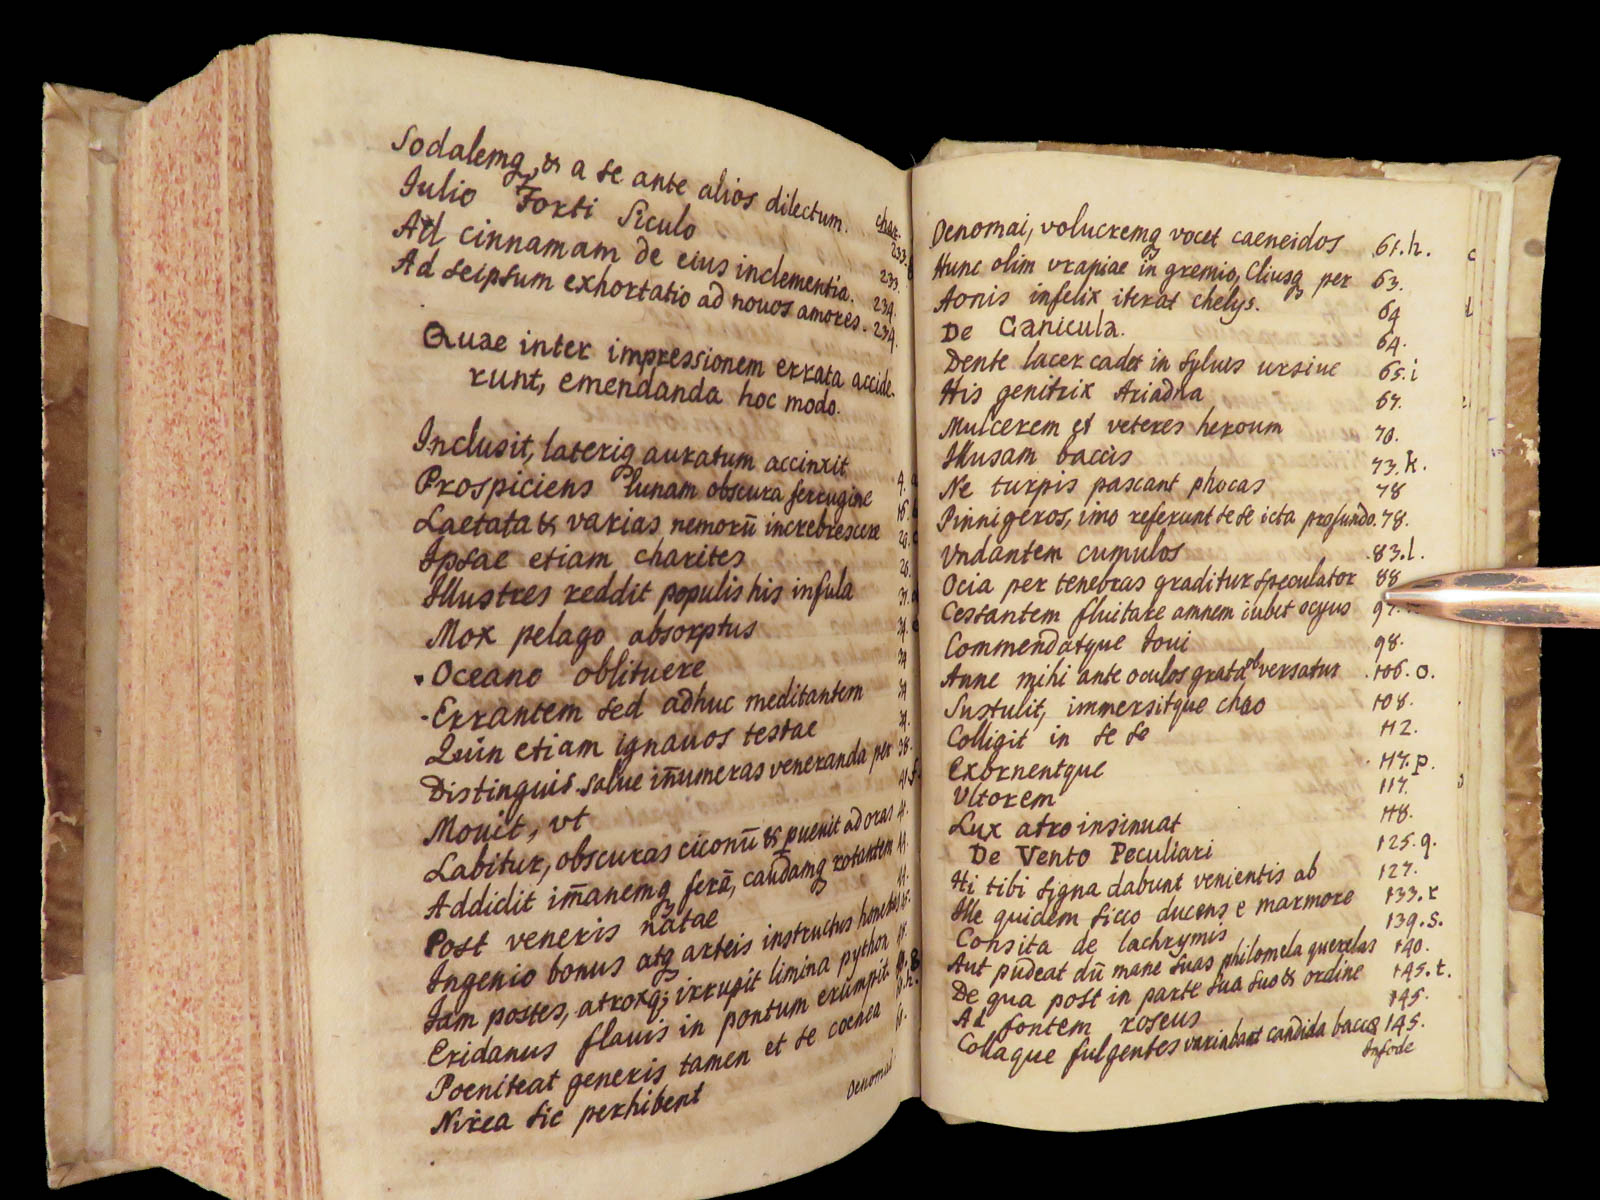 Sodalemq, & a se ante alios dilectum.
Iulio Forti Siculo char. 233.
Ad cinnamam de eius inclementia. 233.
Ad seipsum exhortatio ad nouos amores. 234. 234.
Quae inter impressionem errata accide-
runt, emendanda hoc modo.
Inclusit, lateriq auratum accinxit 4.
Prospiciens lunam obscura ferrugine 15.
Laetata & varias nemorū increbrescere 20.
Ipsae etiam charites 26.
Illustres reddit populis his insula 31.
Mox pelago absorptus 34.
Oceano oblituere 34
Errantem sed adhuc meditantem 34
Quin etiam ignauos testae 34.
Distinguis salue in̄umeras veneranda per 38.
Mouit, vt 41.f.
Labitur, obscuras ciconū & puenit ad oras 4.
Addidit im̄anemq ferā, caudamq rotantem
Post veneris natae
Ingenio bonus atq arteis instructus honestas
Iam postes, atroxq; irrupit limina python
Eridanus flauis in pontum erumpit.
Poeniteat generis tamen et se coenea
Nirea sic perhibent
Oenomai
Oenomai, volucremq vocet caeneidos 61.h.
Hunc olim vraniae in gremio, Cliusq per 63.
Aonis infelix iterat chelys. 64
De Canicula. 64.
Dente lacer cadet in syluis ursiue 65.i
His genitrix Ariadna 67.
Mulcerem et veteres heroum 70.
Illusam baccis 73.k.
Ne turpis pascant phocas 78
Pinnigeros, imo referunt se se icta profundo. 78.
Vndantem cumulos 83.l.
Ocia per tenebras graditur speculator 88
Cessantem fluitare amnem iubet ocyus 97.
Commendatque Ioui 98.
Anne mihi ante oculos grata obversatur 106.o.
Sustulit, immersitque chao 108.
Colligit in se se 112.
Exornentque 117.p.
Vltorem 117.
Lux atro insinuat 118.
De Vento Peculiari 125.q.
Hi tibi signa dabunt venientis ab 127.
Ille quidem sicco ducens e marmore 133.r
Consita de lachrymis 139.s.
Aut pudeat dū mane suas philomela querelas 140.
De qua post in parte sua suo & ordine 145.t.
Ad fontem roseus 145.
Collaque fulgentes variabant candida baccę 145.
Infode